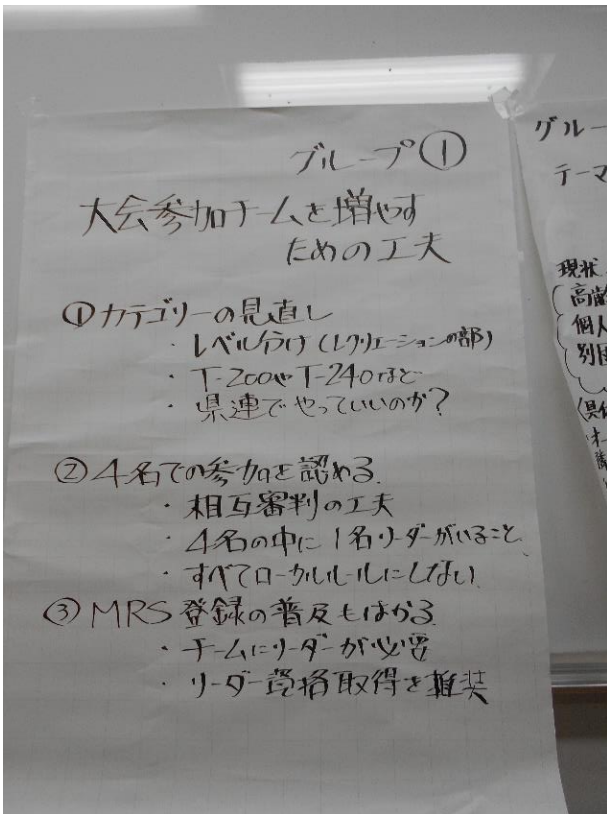 グループ①
大会参加チームを増やす
ための工夫
①カテゴリーの見直し
・レベル分け(レクリエーションの部)
・T-200やT-240など
・県連でやっていいのか?
②4名での参加を認める
・相互審判の工夫
・4名の中に1名リーダーがいること
・すべてローカルルールにしない
③MRS登録の普及もはかる
・チームにリーダーが必要
・リーダー資格取得を推奨
グルー
テーマ
現状
高齢
個人
別